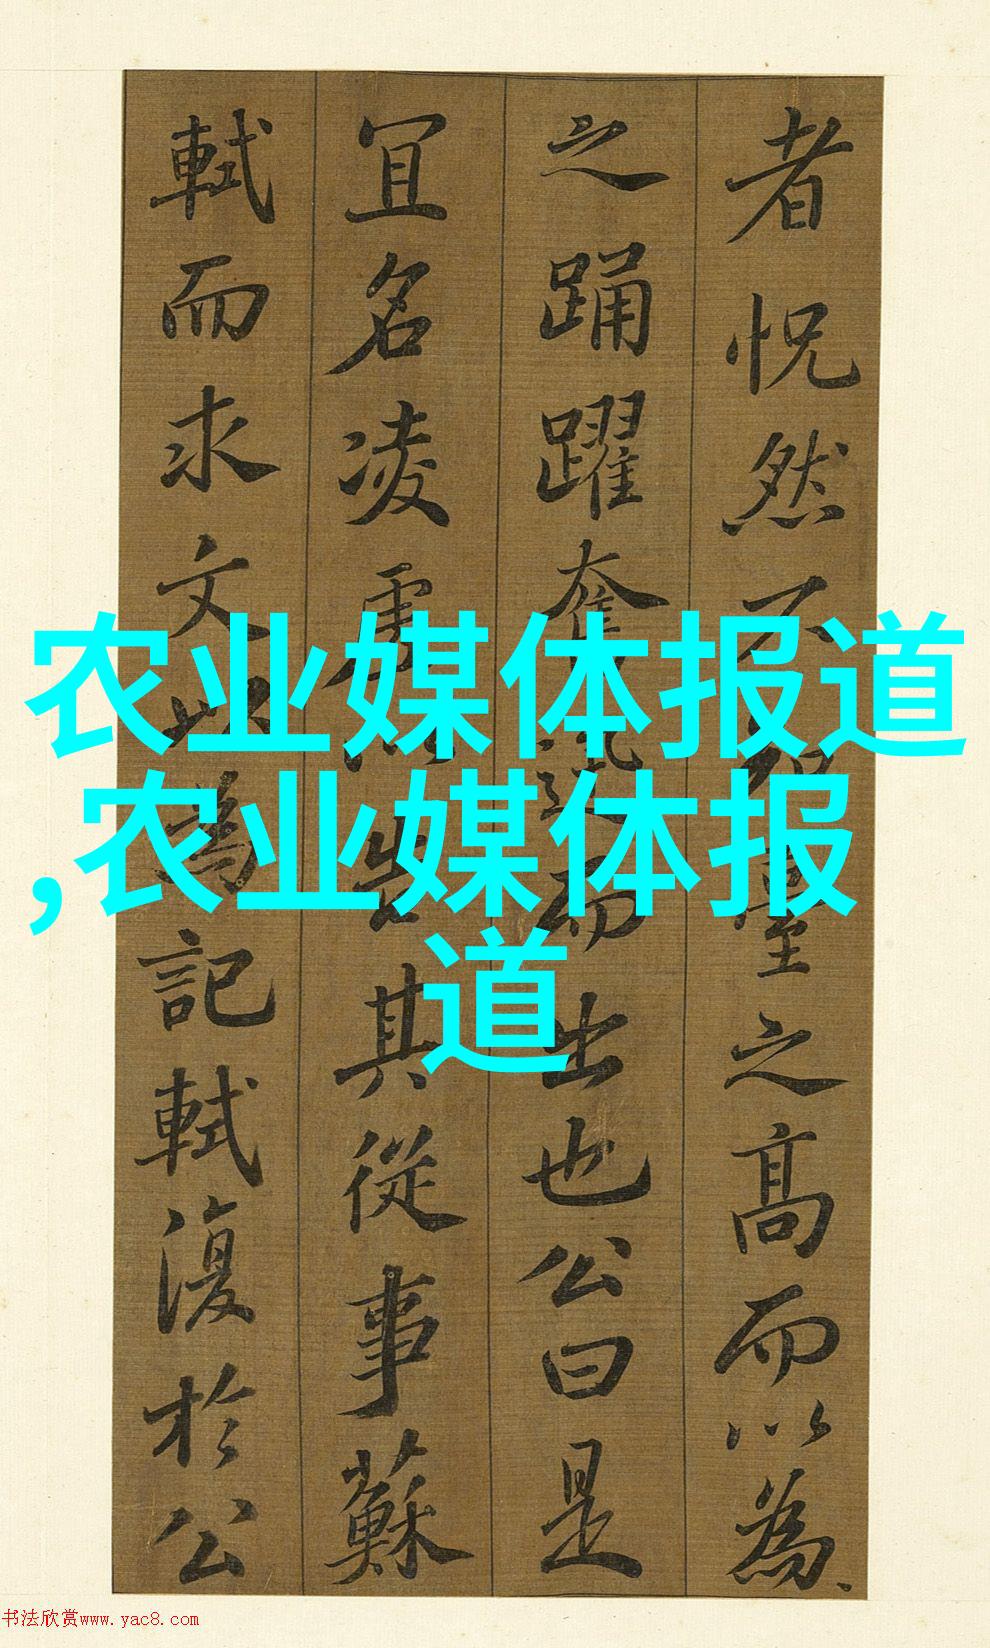 者怳然不知臺之高而以為
之踊躍奮迅而出也公曰是
冝名凌虛以告其從事蘇
軾而求文以為記軾復於公
农业媒体报道
,农业媒体报
道
书法欣赏www.yac8.com